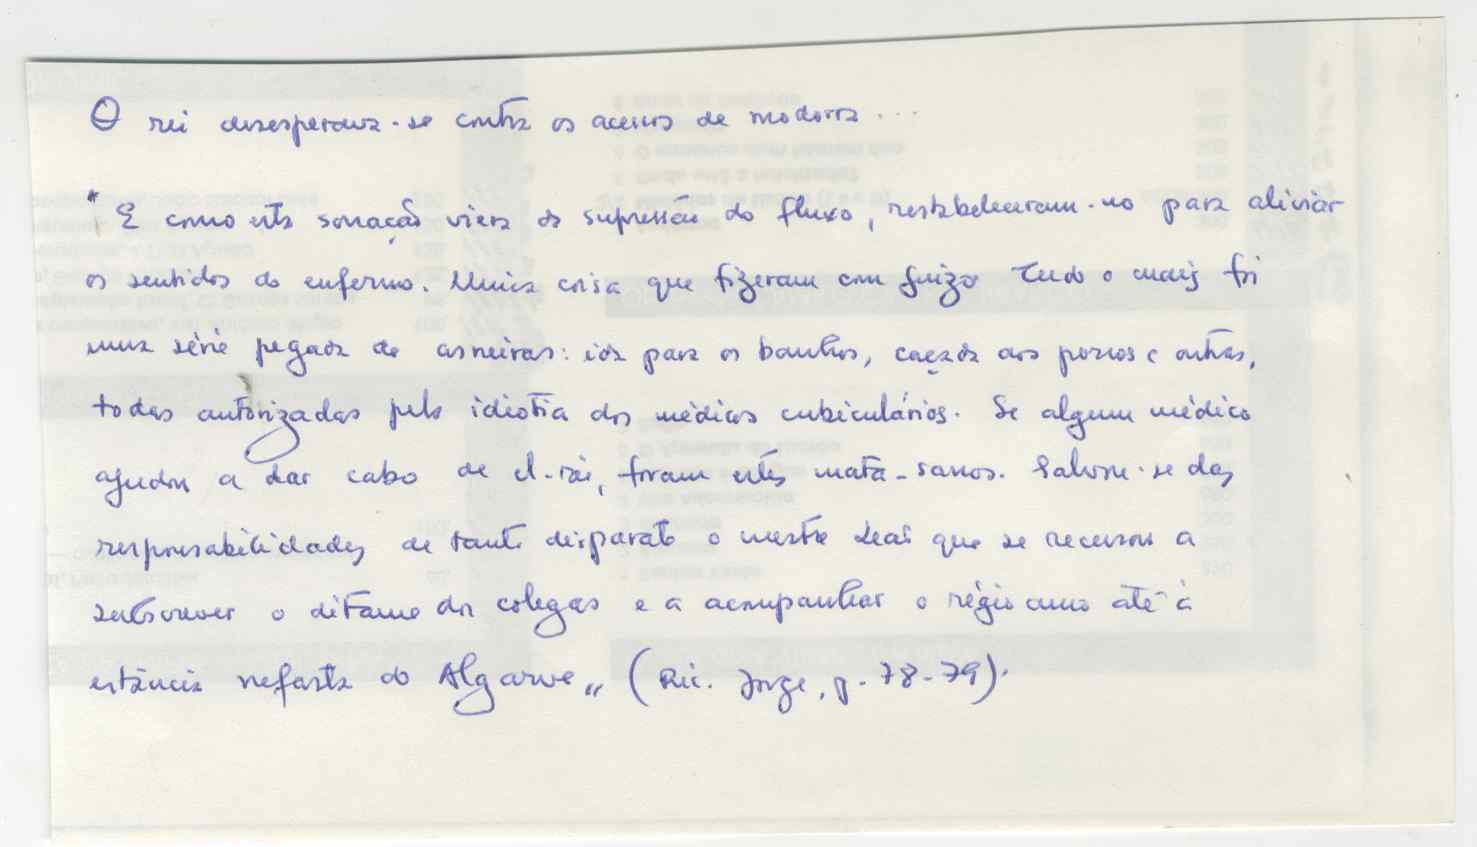 O rei desesperava-se contra os acessos de modorra...
" E como esta sonação viera da supressão do fluxo, restabeleceram-no para aliviar
os sentidos do enfermo. Única coisa que fizeram com juizo Tudo o mais foi
uma série pegada de asneiras: ida para os banhos, caçada aos porcos e outras,
todas autorizadas pela idiotia dos médicos cubiculários. Se algum médico
ajudou a dar cabo de el-rei, foram estes mata-sanos. Salvou-se das
responsabilidades de tanto disparate o mestre Leal que se recusou a
subscrever o ditame dos colegas e a acompanhar o régio amo até à
estância nefasta do Algarve" (Ric. Jorge, p. 78-79).